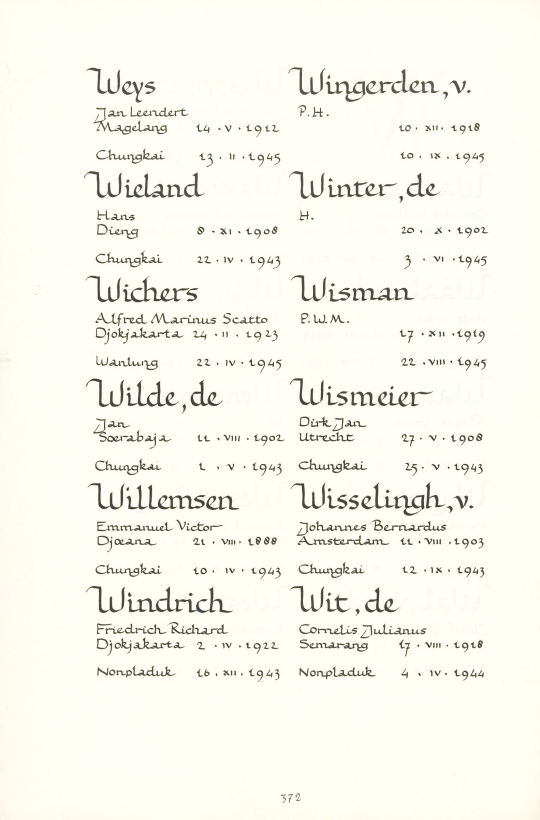 Weys
Jan Leendert
Magelang 14 · V · 1912
Chungkai 13 · II · 1945
Wieland
Hans
Dieng 8 · XI · 1908
Chungkai 22 · IV · 1943
Wichers
Alfred Marinus Scatto
Djokjakarta 24 · II · 1923
Wanlung 22 · IV · 1945
Wilde, de
Jan
Soerabaja 11 · VIII · 1902
Chungkai 1 · V · 1943
Willemsen
Emmanuel Victor
Djoeana 21 · VIII · 1888
Chungkai 10 · IV · 1943
Windrich
Friedrich Richard
Djokjakarta 2 · IV · 1922
Nonpladuk 16 · XII · 1943
Wingerden, v.
P.H.
10 · XII · 1918
10 · IX · 1945
Winter, de
H.
20 · X · 1902
3 · VI · 1945
Wisman
P.W.M.
17 · XII · 1919
22 · VIII · 1945
Wismeier
Dirk Jan
Utrecht 27 · V · 1908
Chungkai 25 · V · 1943
Wisselingh, v.
Johannes Bernardus
Amsterdam 11 · VIII · 1903
Chungkai 12 · IX · 1943
Wit, de
Cornelis Julianus
Semarang 17 · VIII · 1918
Nonpladuk 4 · IV · 1944
372